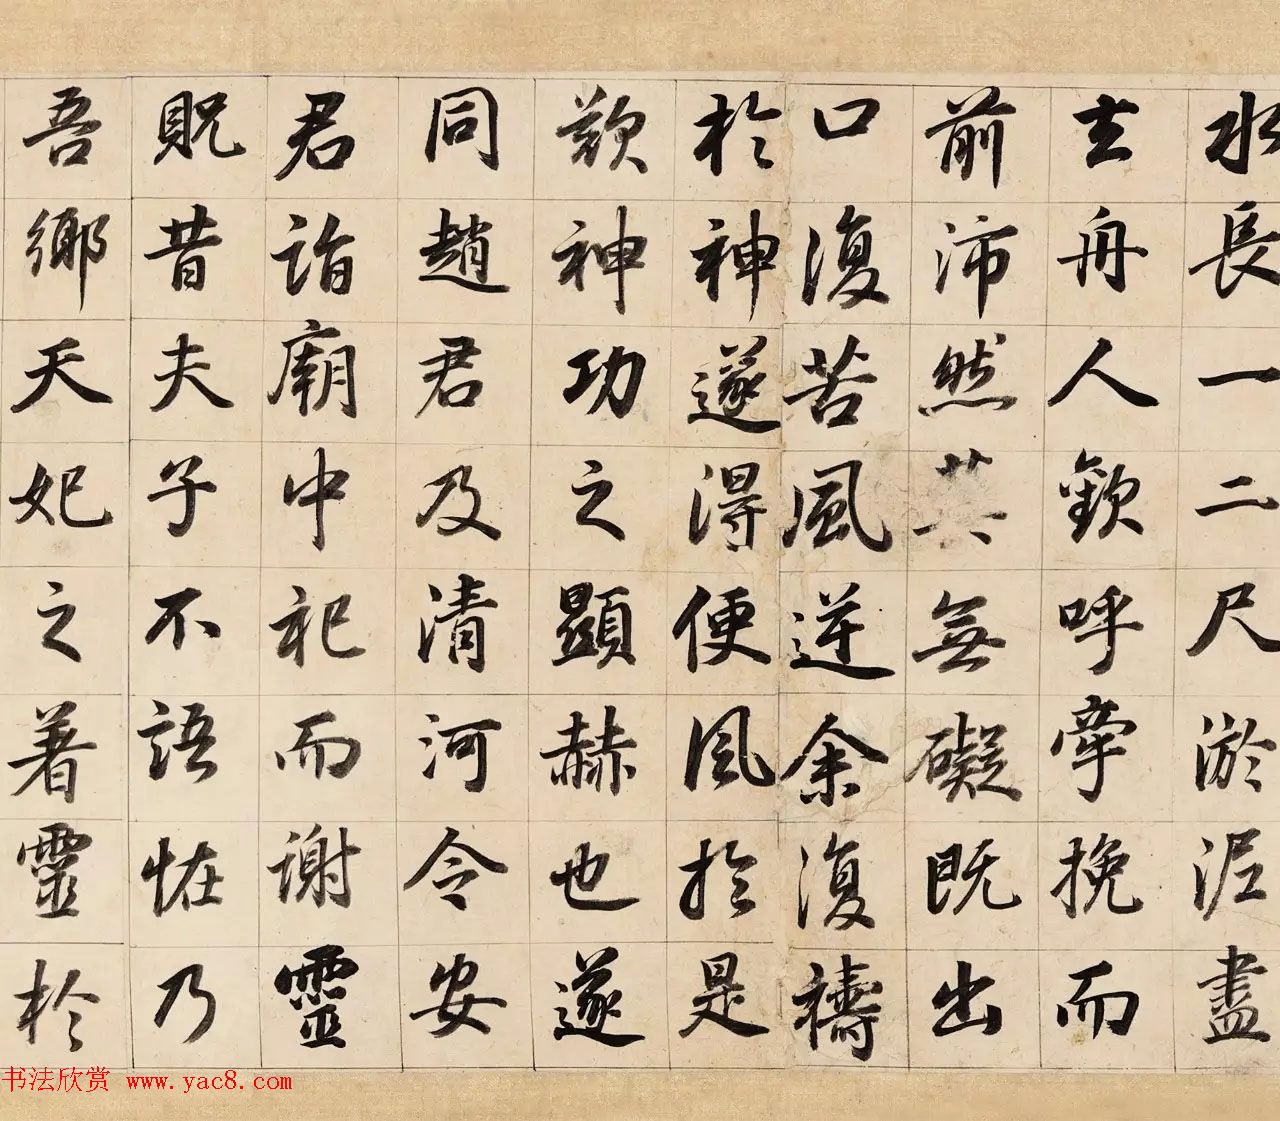 水長一二尺淤泥盡
去舟人歡呼牽挽而
前沛然其無礙既出
口復苦風逆余復禱
於神遂得便風於是
歎神功之顯赫也遂
同趙君及清河令安
君詣廟中祀而謝靈
貺昔夫子不語怪乃
吾鄉天妃之著靈於
书法欣赏 www.yac8.com